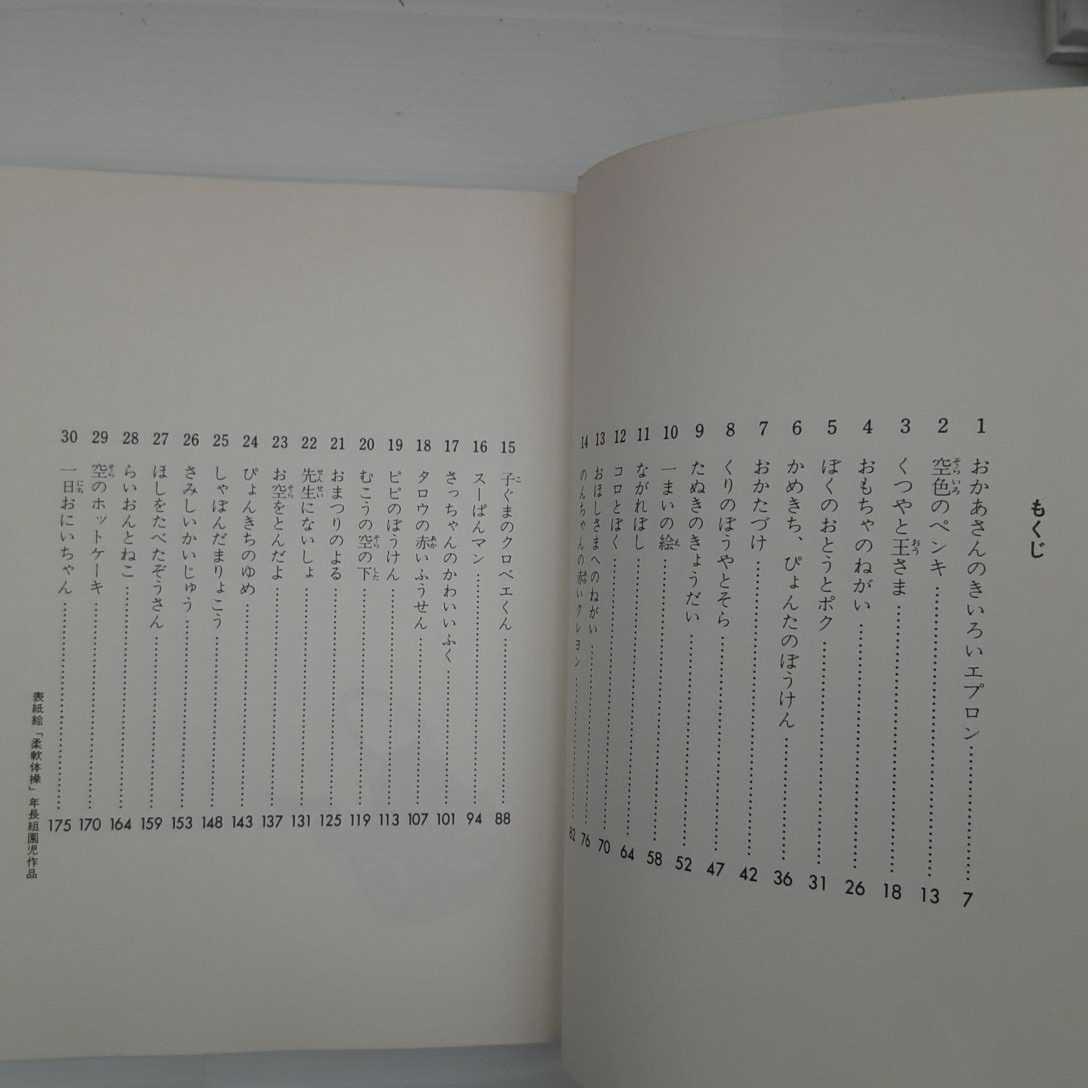 もくじ
1 おかあさんのきいろいエプロン 7
2 空色のペンキ 13
3 くつやと王さま 18
4 おもちゃのねがい 26
5 ぼくのおとうとポク 31
6 かめきち、ぴょんたのぼうけん 36
7 おかたづけ 42
8 くりのぼうやとそら 47
9 たぬきのきょうだい 52
10 一まいの絵 58
11 ながれぼし 64
12 コロとぼく 70
13 おほしさまへのねがい 76
14 のんちゃんの赤いクレヨン 82
15 子ぐまのクロベエくん 88
16 スーぱんマン 94
17 さっちゃんのかわいいふく 101
18 タロウの赤いふうせん 107
19 ピピのぼうけん 113
20 むこうの空の下 119
21 おまつりのよる 125
22 先生にないしょ 131
23 お空をとんだよ 137
24 ぴょんきちのゆめ 143
25 しゃぼんだまりょこう 148
26 さみしいかいじゅう 153
27 ほしをたべたぞうさん 159
28 らいおんとねこ 164
29 空のホットケーキ 170
30 一日おにいちゃん 175
表紙絵「柔軟体操」年長組園児作品